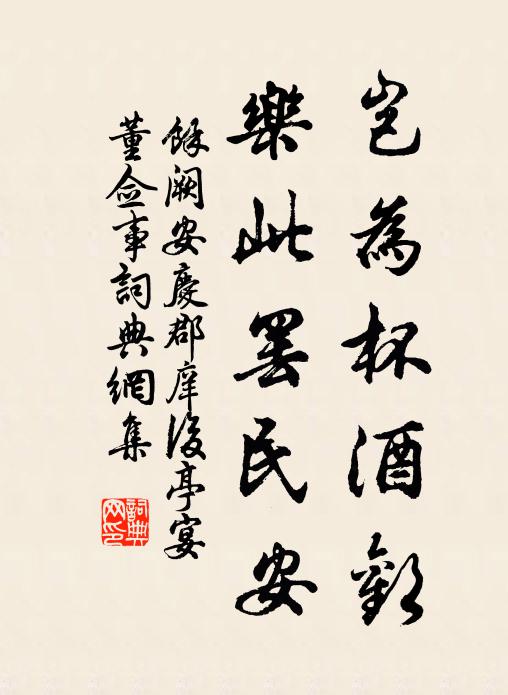 豈為杯酒歡
樂此罷民安
餘闕安慶郡庠後亭宴
董僉事詞典網集
詞典
网印